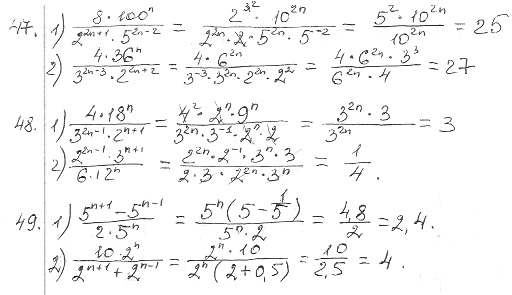 47. 1) 8·100ⁿ / 2²ⁿ⁺¹·5²ⁿ⁻² = 2³²·10²ⁿ / 2²ⁿ·2·5²ⁿ·5⁻² = 5²·10²ⁿ / 10²ⁿ = 25
2) 4·36ⁿ / 3²ⁿ⁻³·2²ⁿ⁺² = 4·6²ⁿ / 3⁻³·3²ⁿ·2²ⁿ·2² = 4·6²ⁿ·3³ / 6²ⁿ·4 = 27
48. 1) 4·18ⁿ / 3²ⁿ⁻¹·2ⁿ⁺¹ = 4²·2ⁿ·9ⁿ / 3²ⁿ·3⁻¹·2ⁿ·2 = 3²ⁿ·3 / 3²ⁿ = 3
2) 2²ⁿ⁻¹·3ⁿ⁺¹ / 6·12ⁿ = 2²ⁿ·2⁻¹·3ⁿ·3 / 2·3·2²ⁿ·3ⁿ = 1 / 4.
49. 1) 5ⁿ⁺¹-5ⁿ⁻¹ / 2·5ⁿ = 5ⁿ(5-1/5) / 5ⁿ·2 = 4,8 / 2 = 2,4.
2) 10·2ⁿ / 2ⁿ⁺¹+2ⁿ⁻¹ = 2ⁿ·10 / 2ⁿ(2+0,5) = 10 / 2,5 = 4.